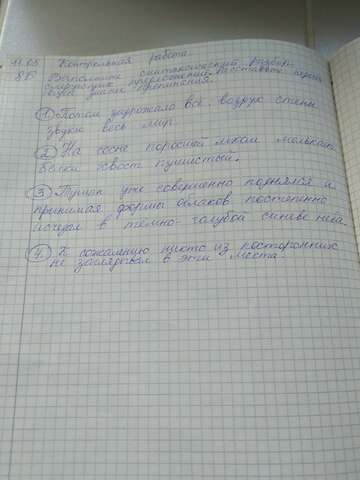 11.05 Контрольная работа.
8Б Выполнить синтаксический разбор
следующих предложений. Расставьте
знаки препинания.
1 Потом задрожало всё, воздух стены
звуков весь мир.
2 На сосне поросшей мхом мелькает
белки хвост пушистый.
3 Туман уже совершенно поднялся и
принимая формы облаков постепенно
исчезал в тёмно-голубой синеве неба
4. К сожалению никто из посторонних
не заглядывал в эти места.